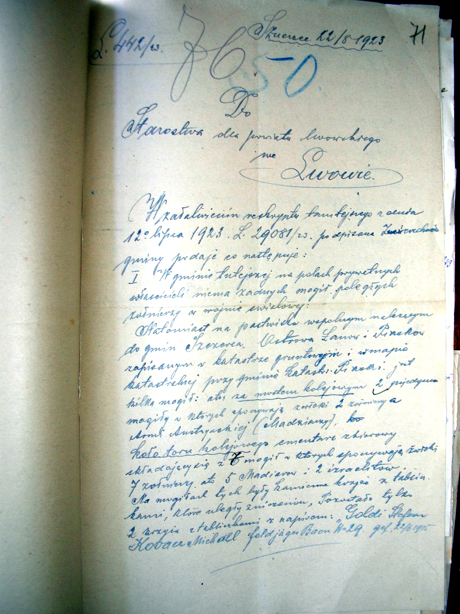 L. 442/23.
Szczerzec 22/8 1923
71
76.
50.
Do
Starostwa dla powiatu lwowskiego
we
Lwowie.
W załatwieniu reskryptu tamtejszego z dnia
12go lipca 1923. L. 29081/23. podpisana Zwierzchność
gminy podaje co następuje:
I W gminie tutejszej na polach prywatnych
właścicieli niema żadnych mogił poległych
żołnierzy w wojnie światowej:
Natomiast na pastwisku wspólnym należącym
do gmin Ostrowa i Piasków
zapisanym w katastrze gruntowym i w mapie
katastralnej przy gminie Piaski jest
kilka mogił: a to za mostem kolejowym 2 pojedyncze
mogiły w których spoczywają zwłoki 2 żołnierzy
Armii Austryackiej (Madziarzy),
koło toru kolejowego cmentarz zbiorowy
składający się z 7 mogił w których spoczywają zwłoki
7 żołnierzy, a to 5 Madiarów i 2 izraelitów.
Na mogiłach tych były kamienne krzyże z tablicz-
kami, które uległy zniszczeniu, Pozostało tylko
2 krzyże z tabliczkami z napisem: Goldi Stefan
Kovacs Michall feldjäger Baon N 29